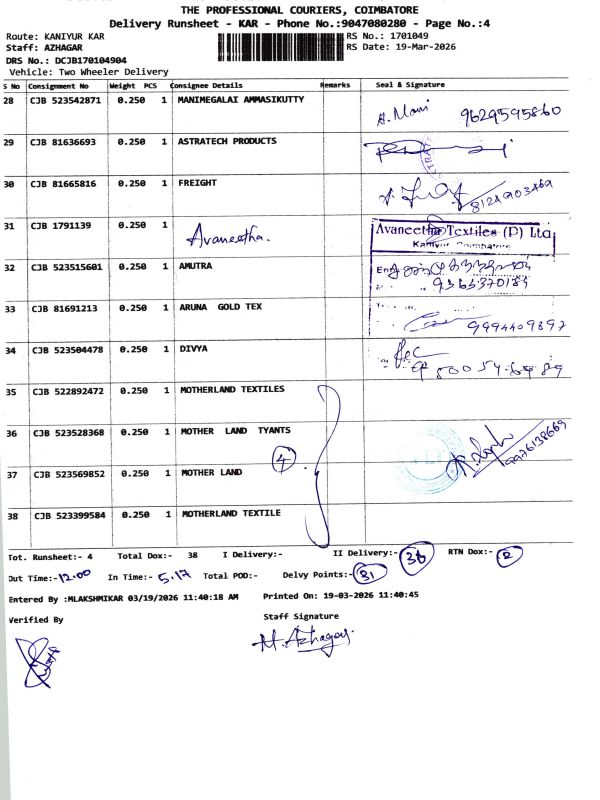 THE PROFESSIONAL COURIERS, COIMBATORE
Delivery Runsheet - KAR - Phone No.:9047080280 - Page No.:4
Route: KANIYUR KAR RS No.: 1701049
Staff: AZHAGAR RS Date: 19-Mar-2026
DRS No.: DCJB170104904
Vehicle: Two Wheeler Delivery
S No Consignment No Weight PCS Consignee Details Remarks Seal & Signature
28 CJB 523542871 0.250 1 MANIMEGALAI AMMASIKUTTY A. Mani 9629595860
29 CJB 81636693 0.250 1 ASTRATECH PRODUCTS
30 CJB 81665816 0.250 1 FREIGHT 8124903469
31 CJB 1791139 0.250 1 Avaneetha. Avaneetha Textiles (P) Ltd
Kaniyur Coimbatore
32 CJB 523515601 0.250 1 AMUTRA 9363370184
33 CJB 81691213 0.250 1 ARUNA GOLD TEX 9994409897
34 CJB 523504478 0.250 1 DIVYA
35 CJB 522892472 0.250 1 MOTHERLAND TEXTILES
36 CJB 523528368 0.250 1 MOTHER LAND TYANTS 4 9976138669
37 CJB 523569852 0.250 1 MOTHER LAND
38 CJB 523399584 0.250 1 MOTHERLAND TEXTILE
Tot. Runsheet:- 4 Total Dox:- 38 I Delivery:- II Delivery:- 36 RTN Dox:- 2
Out Time:- 12.00 In Time:- 5.17 Total POD:- Delvy Points:- 31
Entered By :MLAKSHMIKAR 03/19/2026 11:40:18 AM Printed On: 19-03-2026 11:40:45
Verified By Staff Signature
M. Azhagar